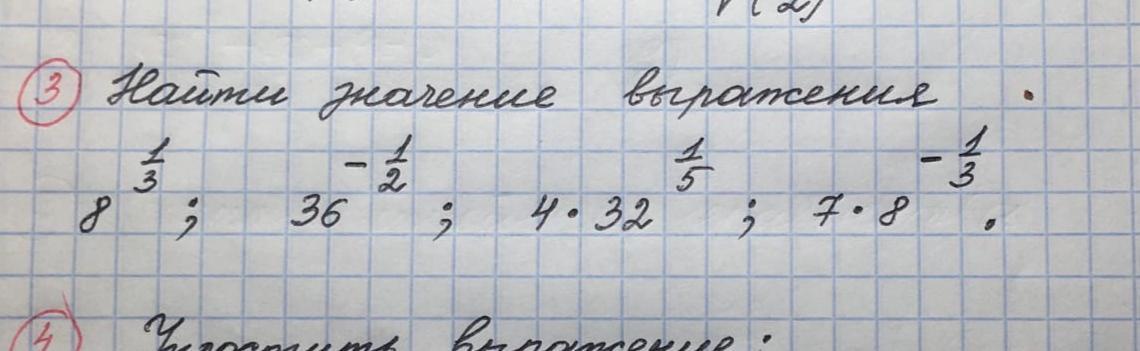 3 Найти значение выражения.
8^{1/3}; 36^{-1/2}; 4·32^{1/5}; 7·8^{-1/3}.
4 Упростить выражение: